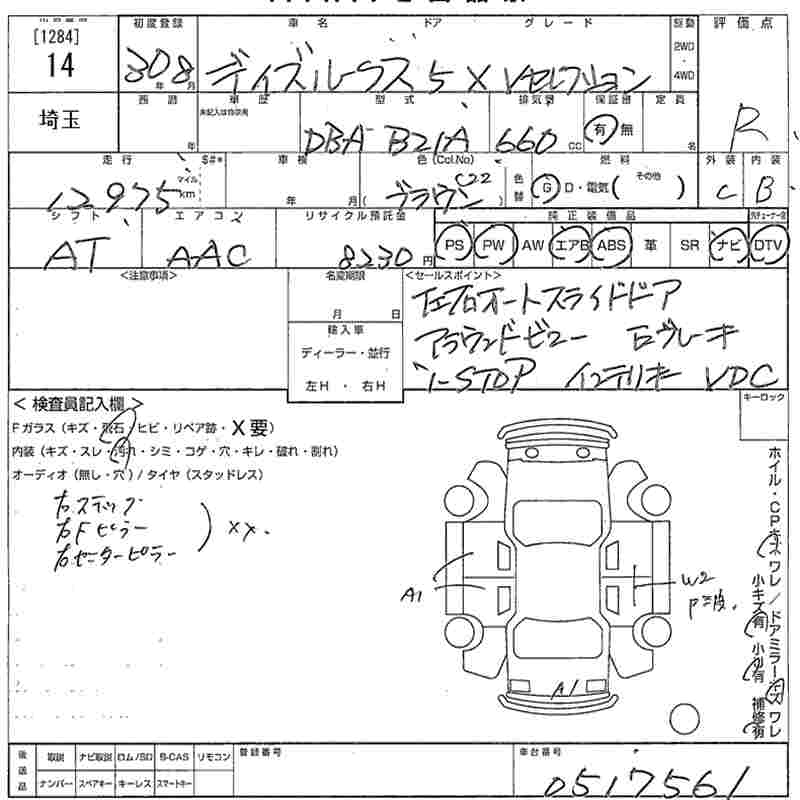 [1284] 初度登録 車名 ドア グレード 駆動 評価点
14 30 8 年 月 ディズルークス 5 X Vセレクション 2WD ・ 4WD
埼玉 西暦 年 車歴 未記入は自家用 型式 排気量 保証書 定員 R
DBA B21A 660 cc 有 無 名
走行 $#* 車検 色(Col.No) 燃料 外装 内装
12975 マイル km 年 月 ( ブラウン C22 ) 色替 G D・電気( その他 ) C B
シフト エアコン リサイクル預託金 純正装備品
AT AAC 8230 円 PS PW AW エアB ABS 革 SR ナビ DTV
<注意事項> 名変期限 <セールスポイント>
月 日 オートスライドドア
輸入車 アラウンドビュー Eブレーキ
ディーラー・並行 i-STOP インテリキー VDC
左H ・ 右H
< 検査員記入欄 > キーロック
Fガラス(キズ・飛石・ヒビ・リペア跡・X要)
内装(キズ・スレ・汚れ・シミ・コゲ・穴・キレ・破れ・割れ)
オーディオ(無し・穴)/タイヤ(スタッドレス)
右ステップ
右Fピラー ) XX.
右センターピラー
A1 W2
P三波.
A1
ホイル・CPキズ ワレ/ドアミラーキズ ワレ
小キズ有 小凹有 補修有
後送品 取説 ナビ取説 ロム/SD B-CAS リモコン 登録番号 車台番号
ナンバー スペアキー キーレス スマートキー 0517561